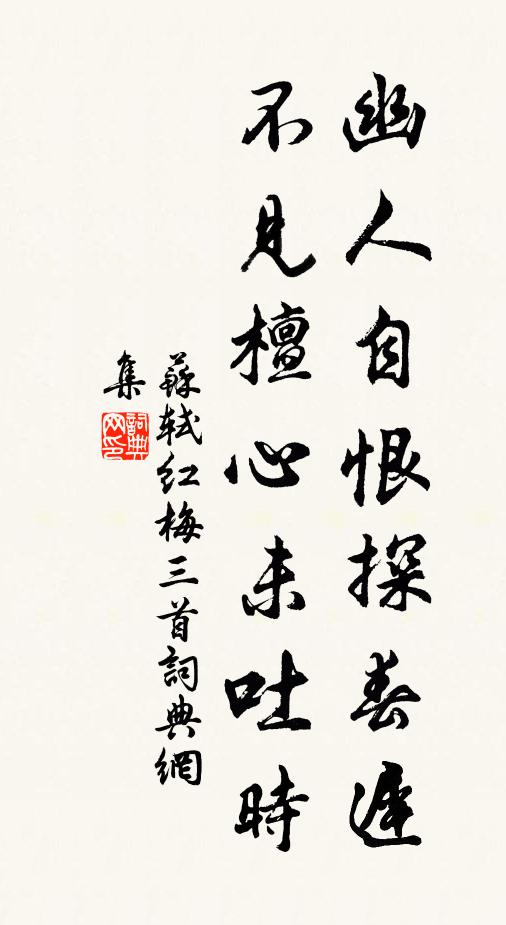 幽人自恨探春遲
不見檀心未吐時
蘇軾紅梅三首詞典網
集
詞典
网印